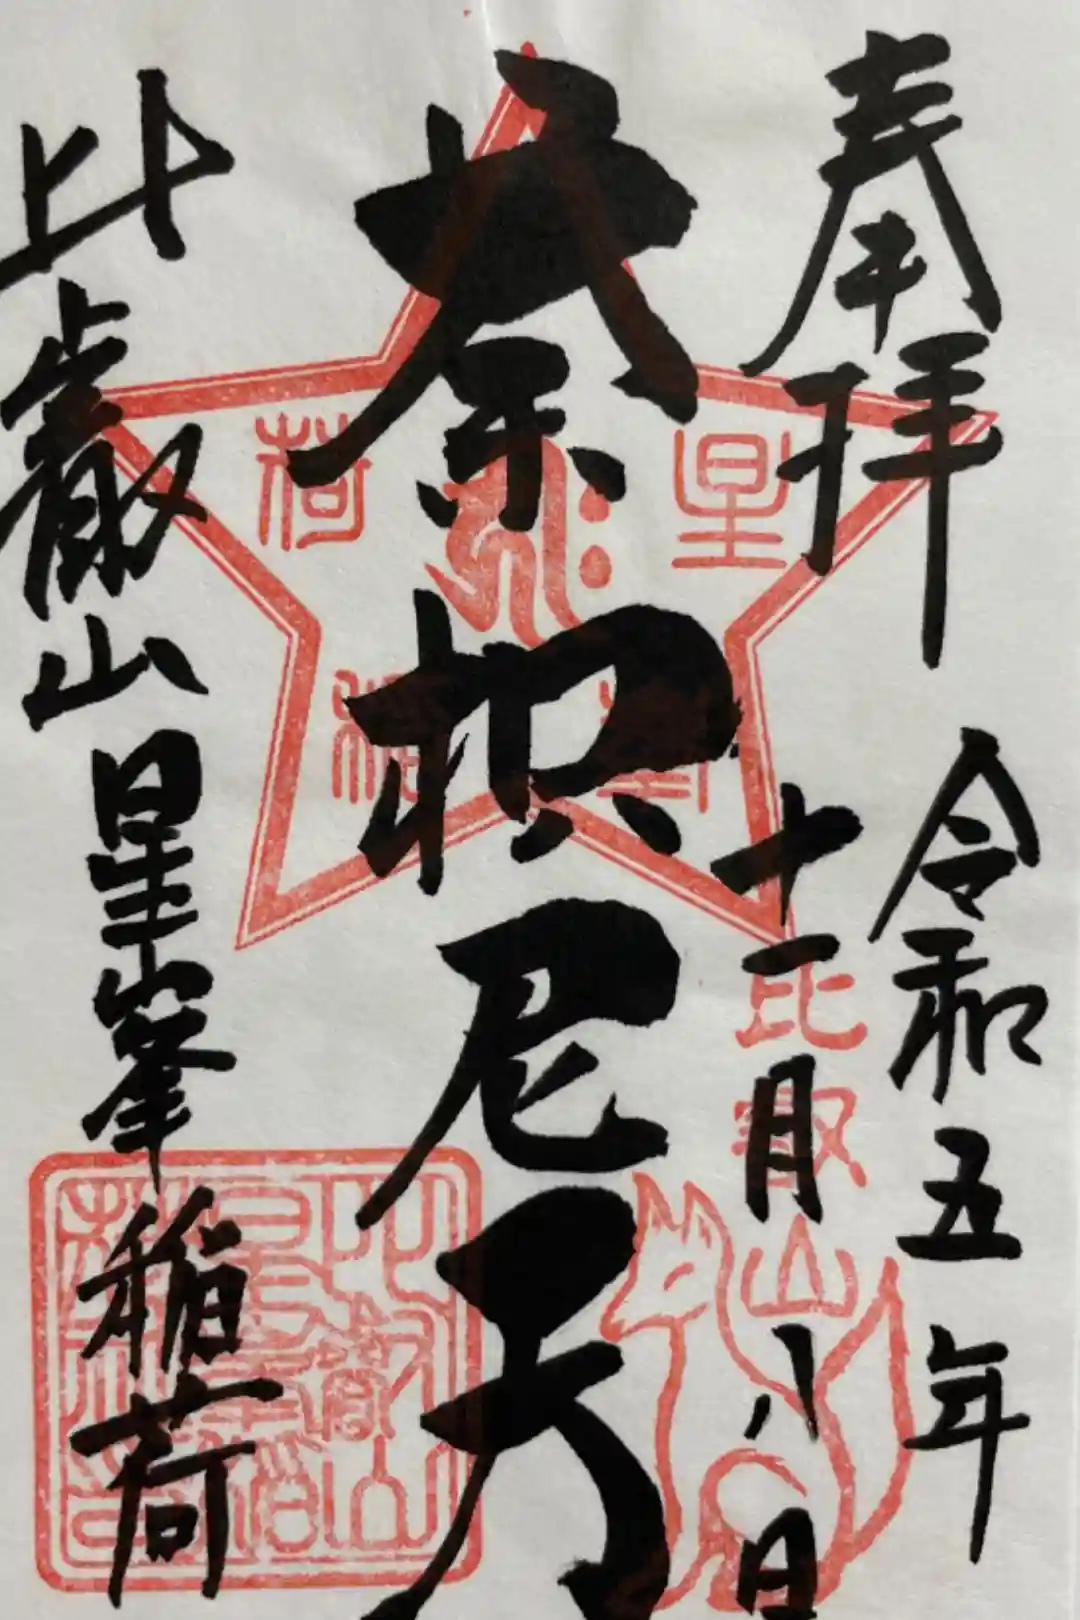 奉拝
令和五年
十一月八日
荼枳尼天
比叡山
星峯稲荷
星峯
稲荷
比叡山